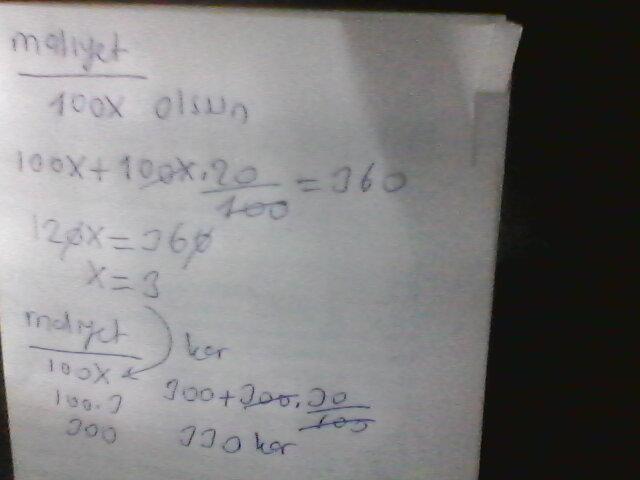 maliyet
100x olsun
100x + 100x . 20/100 = 360
120x = 360
x = 3
maliyet
kar
100x
100.3 300 + 300 . 30/100
300 330 kar